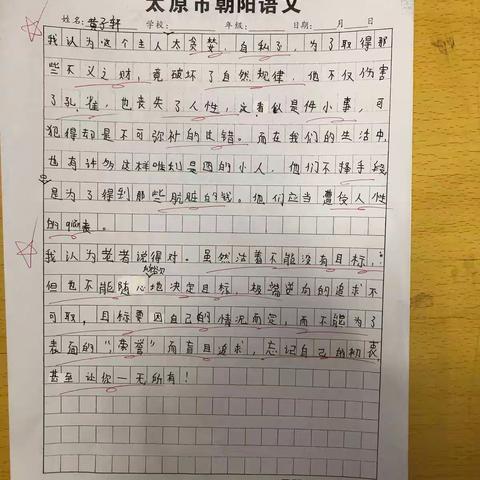 太原市朝阳语文
姓名:黄子轩 学校: 年级: 日期: 月 日
我认为这个主人太贪婪,自私了,为了取得那
些不义之财,竟破坏了自然规律,他不仅伤害
了孔雀,也丧失了人性,这看似是件小事,可
犯得却是不可弥补的过错。而在我们的生活中,
也有许多这样唯利是图的小人,他们不择手段
是为了得到那些肮脏的钱。他们应当遭受人性
的谴责。
我认为老者说得对。虽然活着不能没有目标,
但也不能随心地决定目标,极端逆向的追求不
可取,目标要因自己的情况而定,而不能为了
表面的“荣誉”而盲目追求,忘记自己的初衷
甚至让你一无所有!